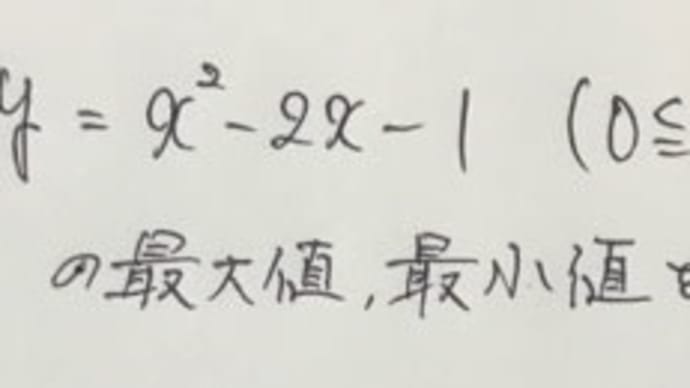 y = x² - 2x - 1 (0 ≦
の最大値, 最小値